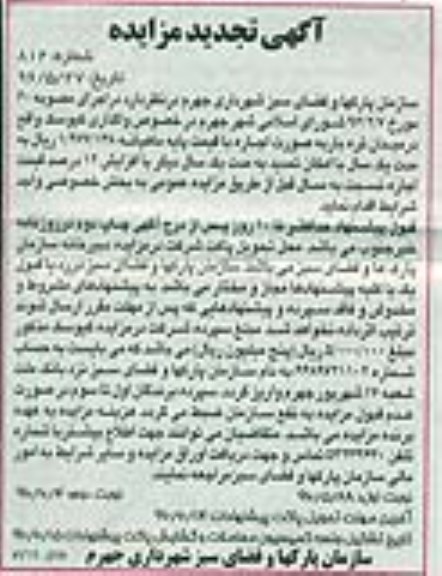 آگهی تجدید مزایده
شماره: ۸۱۶
تاریخ: ۹۶/۵/۲۷
سازمان پارکها و فضای سبز شهرداری جهرم در نظر دارد در اجرای مصوبه ۳۰
مورخ شورای اسلامی شهر جهرم در خصوص واگذاری کیوسک واقع
در میدان تره بار به صورت اجاره با قیمت پایه ماهیانه ریال به
مدت یک سال با امکان تمدید به مدت یک سال دیگر با افزایش ۱۲ درصد قیمت
اجاره نسبت به سال قبل از طریق مزایده عمومی به بخش خصوصی واجد
شرایط اقدام نماید.
قبول پیشنهاد حداکثر تا ۱۰ روز پس از درج آگهی چاپ دوم در روزنامه
خبرجنوب می باشد. محل تحویل پاکت شرکت در مزایده دبیرخانه سازمان
پارک ها و فضای سبز می باشد. سازمان پارکها و فضای سبز در رد یا قبول
یک یا کلیه پیشنهادها مجاز و مختار می باشد. به پیشنهادهای مشروط و
مخدوش و فاقد سپرده و پیشنهادهایی که پس از مهلت مقرر ارسال شوند
ترتیب اثر داده نخواهد شد. مبلغ سپرده شرکت در مزایده کیوسک مذکور
مبلغ ریال (پنج میلیون ریال) می باشد که می بایست به حساب
شماره به نام سازمان پارکها و فضای سبز نزد بانک ملت
شعبه ۱۷ شهریور جهرم واریز گردد. سپرده برندگان اول تا سوم در صورت
عدم قبول مزایده به نفع سازمان ضبط می گردد. هزینه مزایده به عهده
برنده مزایده می باشد. متقاضیان می توانند جهت اطلاع بیشتر با شماره
تلفن تماس و جهت دریافت اوراق مزایده و سایر شرایط به امور
مالی سازمان پارکها و فضای سبز مراجعه نمایند.
نوبت اول: نوبت دوم:
آخرین مهلت تحویل پاکت پیشنهادات
تاریخ تشکیل جلسه کمیسیون معاملات و گشایش پاکت پیشنهادات
سازمان پارکها و فضای سبز شهرداری جهرم